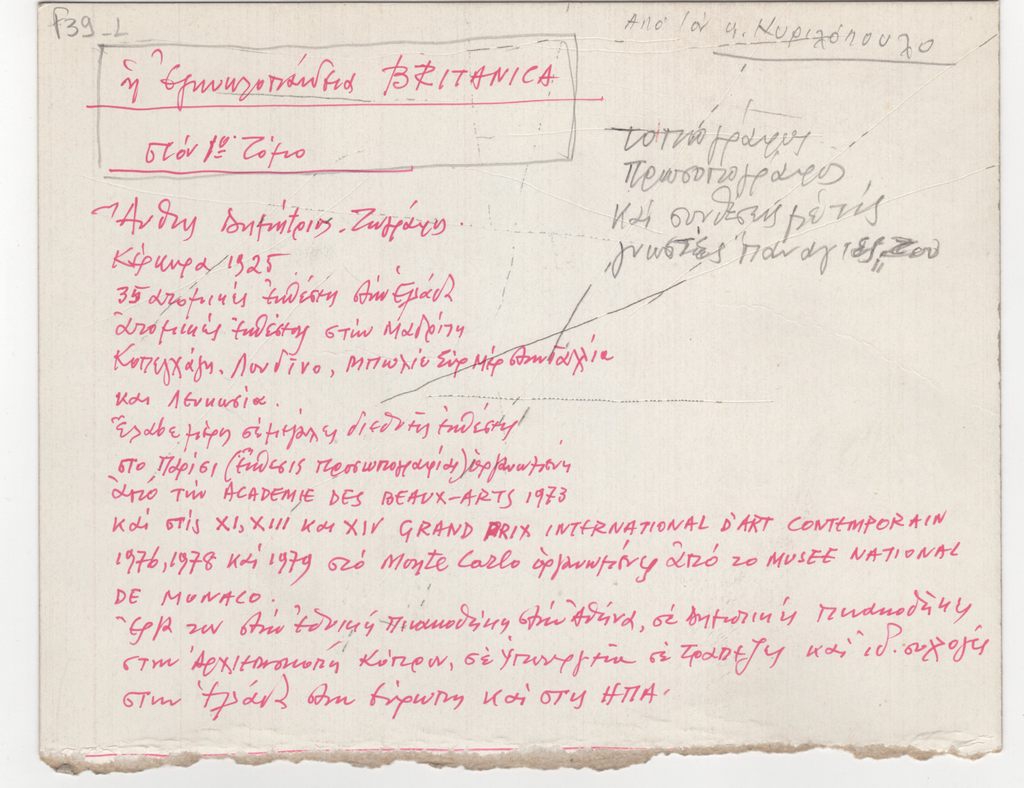 f39_L
Από τόν κ. Κυριλόπουλο
ἡ Ἐγκυκλοπαίδεια BRITANICA
στόν 1ο τόμο
τοπιογράφος
Προσωπογράφος
καί συνθέσεις μέ τίς
γνωστές Παναγίες του
Ἄνθης Δημήτριος. Ζωγράφος.
Κέρκυρα 1925
35 ατομικές ἐκθέσεις στήν Ἑλλάδα
ἀτομικές ἐκθέσεις στήν Μαδρίτη
Κοπεγχάγη. Λονδίνο, στήν Γαλλία
και Λευκωσία.
Ἔλαβε μέρος σέ μεγάλες διεθνεῖς ἐκθέσεις
στο Παρίσι (Ἔκθεσις προσωπογραφίας) ὀργανωμένη
ἀπό τήν ACADEMIE DES BEAUX-ARTS 1973
και στίς XI, XIII και XIV GRAND PRIX INTERNATIONAL D'ART CONTEMPORAIN
1976, 1978 καί 1979 στό Monte Carlo ὀργανωμένες ἀπό το MUSEE NATIONAL
DE MONACO.
Ἔργα του στήν Ἐθνική Πινακοθήκη στήν Ἀθήνα, σέ Δημοτικές πινακοθήκες
στην Ἀρχιεπισκοπή Κύπρου, σέ Υπουργεῖα σέ Τράπεζες καί ἰδ. συλλογές
στην Ἑλλάδα στην Εὐρώπη καί στις ΗΠΑ.